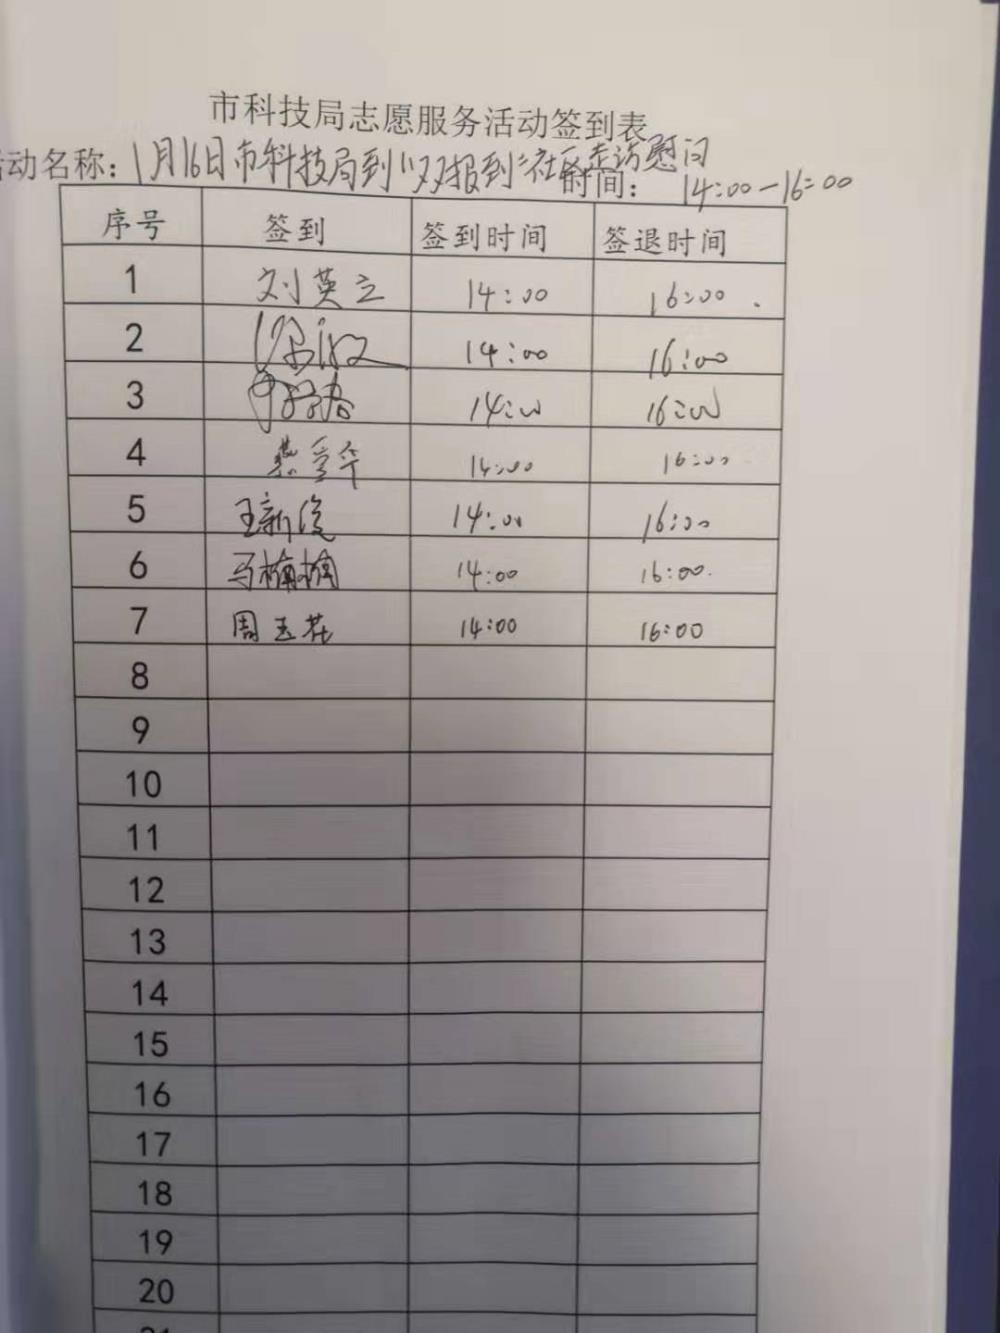 市科技局志愿服务活动签到表
动名称：1月16日市科技局到“双报到”社区走访慰问
时间： 14:00-16:00
序号 签到 签到时间 签退时间
1 刘英立 14:00 16:00
2 14:00 16:00
3 14:00 16:00
4 14:00 16:00
5 王新俊 14:00 16:00
6 马楠楠 14:00 16:00
7 周玉花 14:00 16:00
8
9
10
11
12
13
14
15
16
17
18
19
20